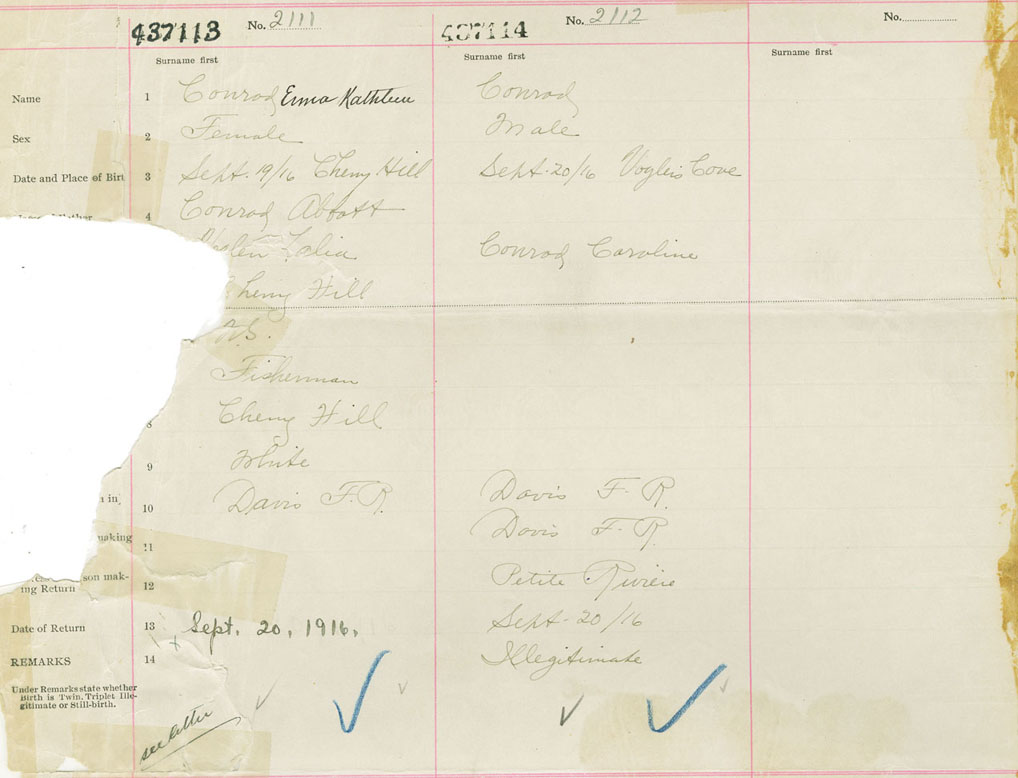 437113 No. 2111 437114 No. 2112 No.
Surname first Surname first Surname first
Name 1 Conrad Erma Kathleen Conrad
Sex 2 Female Male
Date and Place of Birt 3 Sept. 19/16 Cherry Hill Sept. 20/16 Voglers Cove
4 Conrad Abbott
Conrad Caroline
Cherry Hill
N.S.
Fisherman
8 Cherry Hill
9 White
in 10 Davis F. R. Davis F. R.
making 11 Davis F. R.
son mak-
ing Return 12 Petite Riviere
Date of Return 13 Sept. 20, 1916. Sept. 20/16
REMARKS 14 Illegitimate
Under Remarks state whether
Birth is Twin, Triplet Ille-
gitimate or Still-birth.
see letter